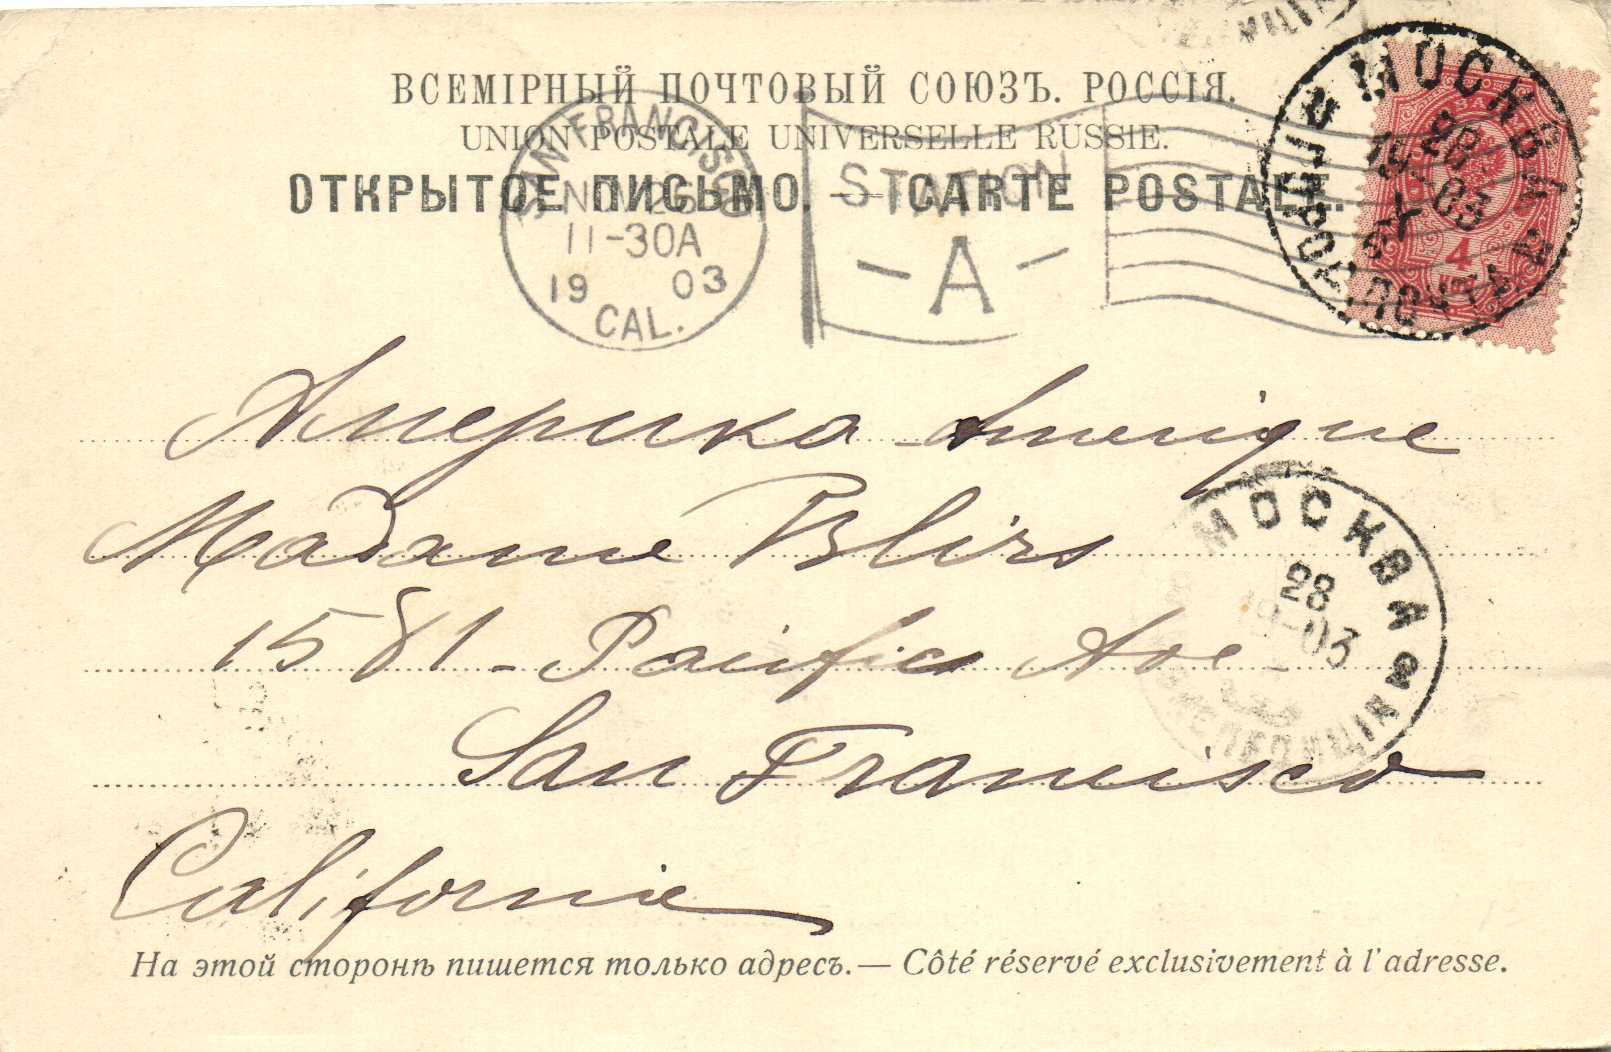 ВСЕМІРНЫЙ ПОЧТОВЫЙ СОЮЗЪ. РОССІЯ.
UNION POSTALE UNIVERSELLE RUSSIE.
ОТКРЫТОЕ ПИСЬМО. — CARTE POSTALE.
SAN FRANCISCO
NOV 26
11-30A
19 03
CAL.
STATION
- A -
МОСКВА
28
19-03
X
4
Америка Amerique
Madame Bliss
1581 - Pacific Ave
San Francisco
Californie
МОСКВА
28
19-03
ЭКСПЕДИЦІЯ
На этой сторонѣ пишется только адресъ. — Côté réservé exclusivement à l'adresse.